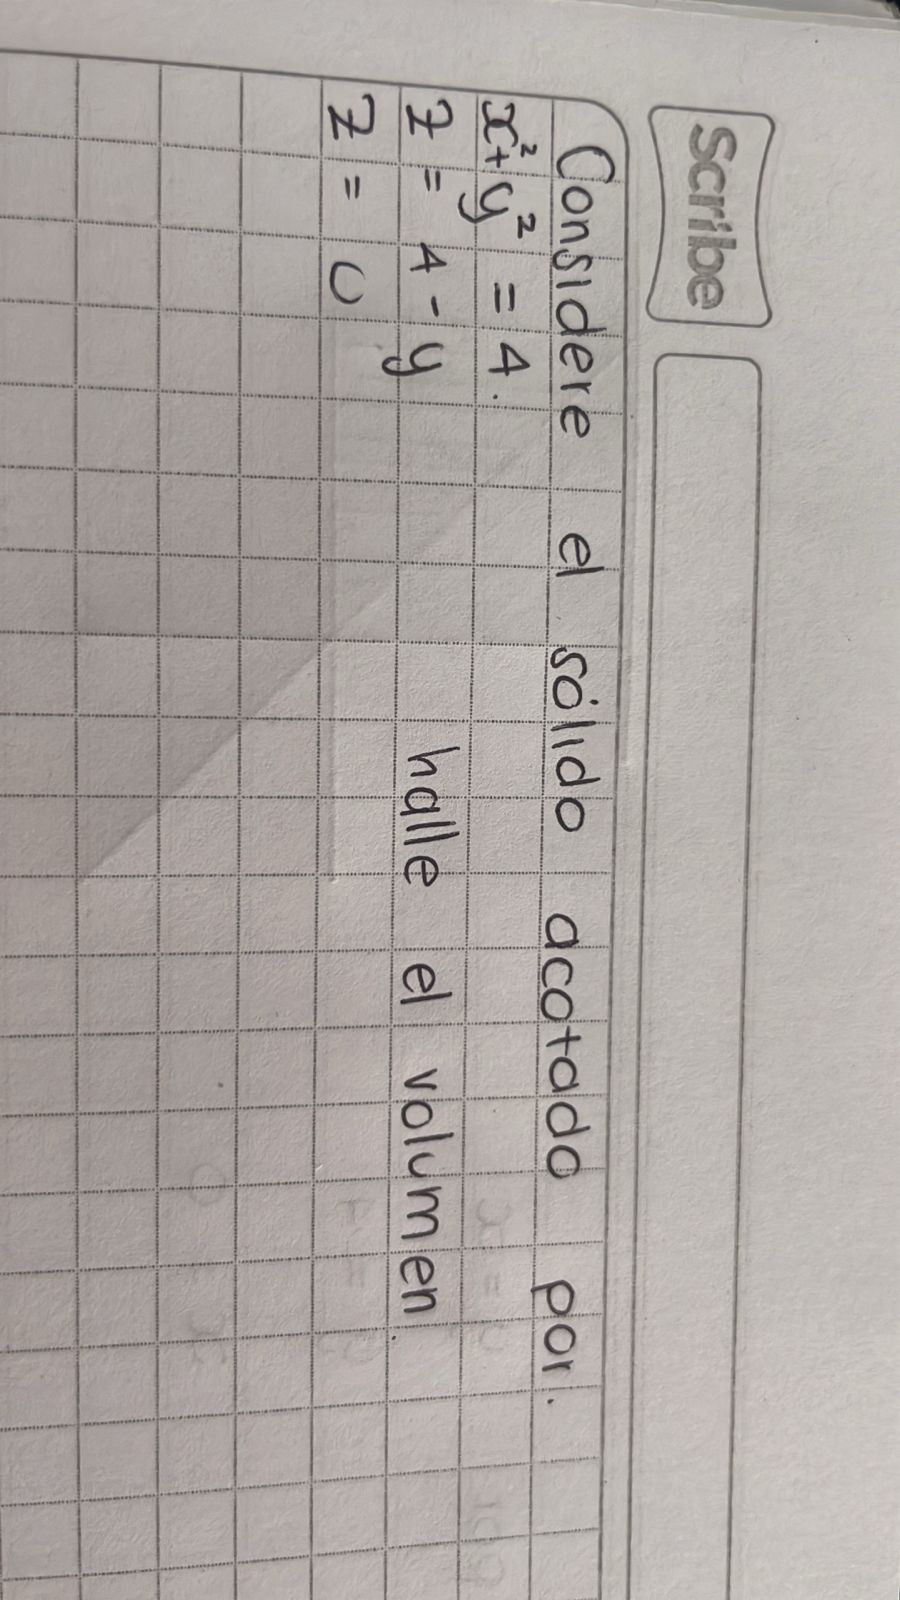 Scribe
Considere el sólido acotado por.
x² + y² = 4.
z = 4 - y halle el volumen.
z = 0